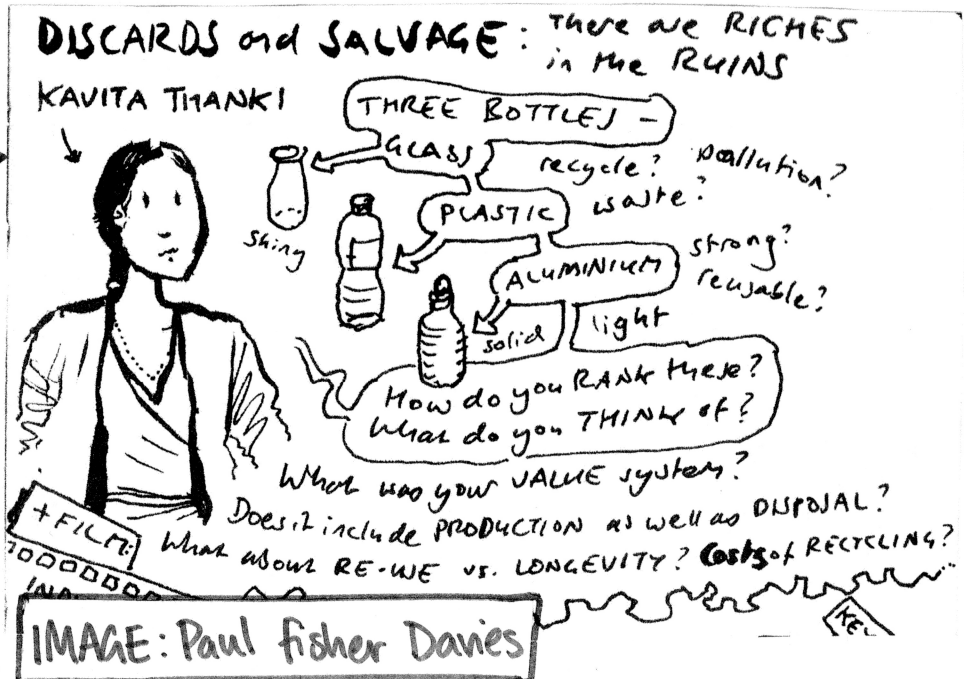 DISCARDS and SALVAGE: There are RICHES
in the RUINS
KAVITA THANKI
THREE BOTTLES -
GLASS
recycle? pollution?
waste?
PLASTIC
shiny
ALUMINIUM
strong?
reusable?
solid
light
How do you RANK these?
What do you THINK of?
What was your VALUE system?
Does it include PRODUCTION as well as DISPOSAL?
What about RE-USE vs. LONGEVITY? Costs of RECYCLING?
+ FILM:
IMAGE: Paul fisher Davies